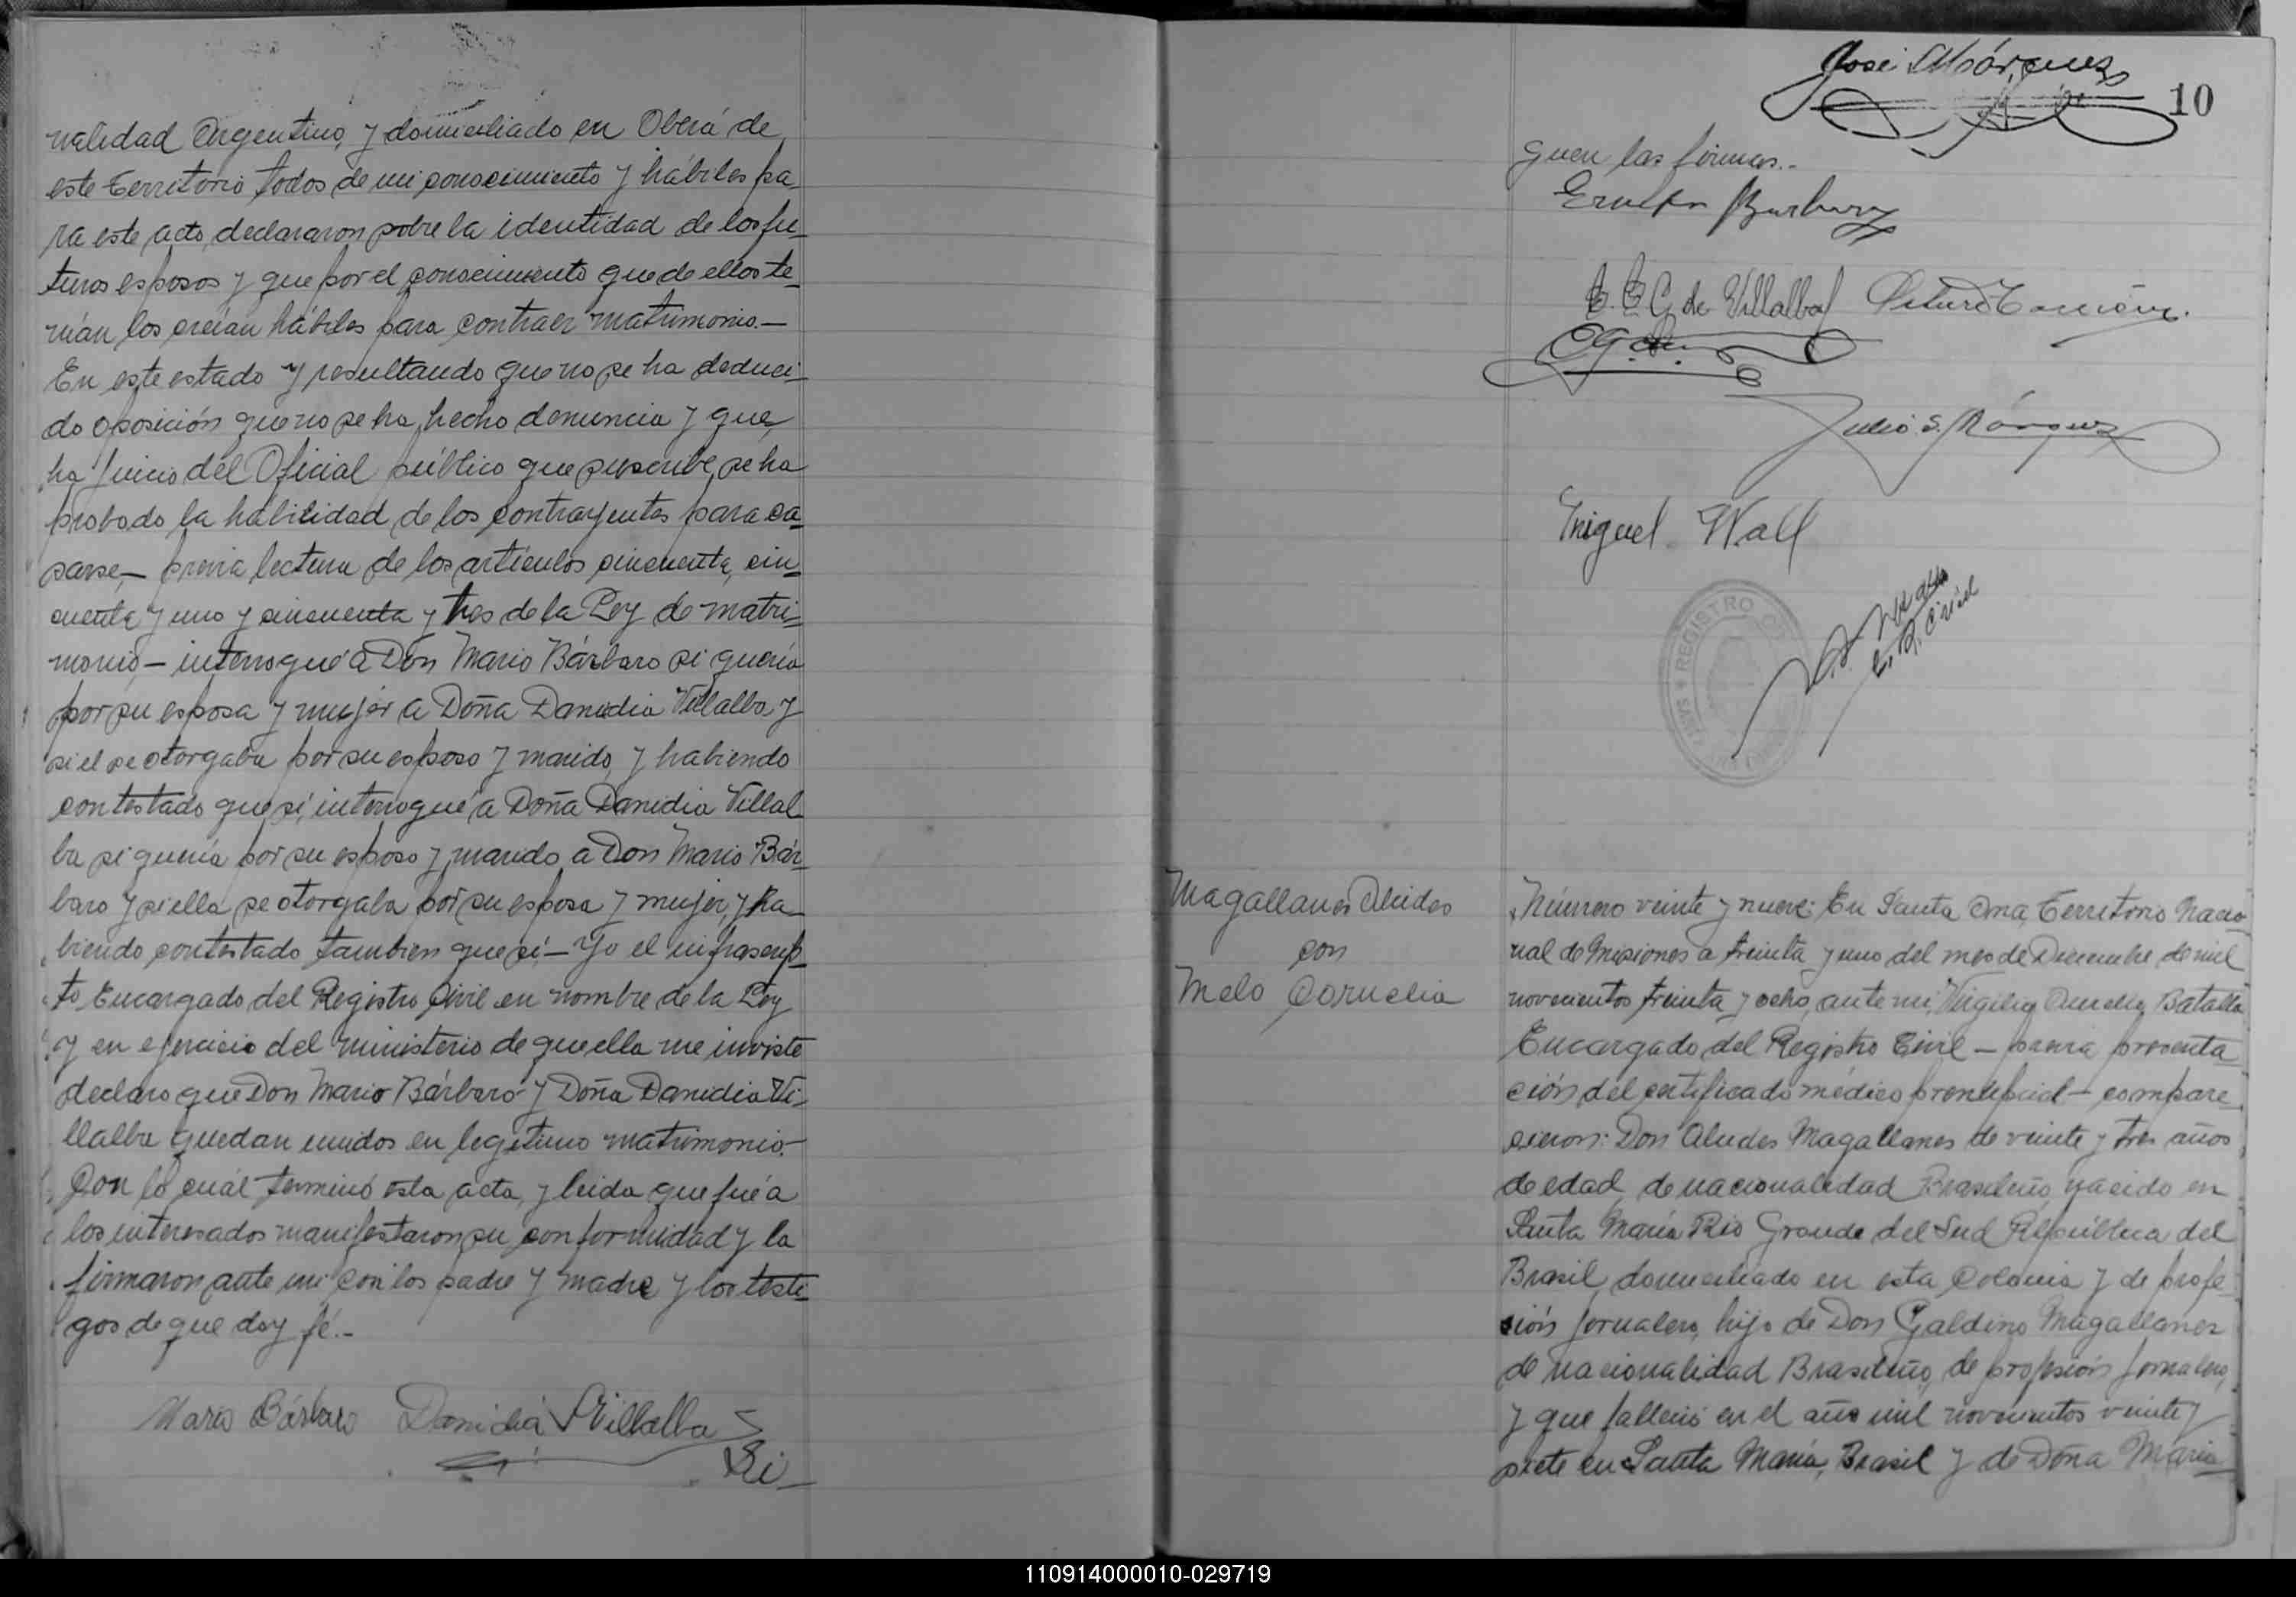 nalidad Argentino, y domiciliado en Oberá de
este Territorio todos de mi conocimiento y hábiles pa
ra este acto, declararon sobre la identidad de los fu-
turos esposos y que por el conocimiento que de ellos te-
nían los creían hábiles para contraer matrimonio.—
En este estado y resultando que no se ha deduci-
do oposición que no se ha hecho denuncia y que,
ha juicio del Oficial público que suscribe, se ha
probado la habilidad de los contrayentes para ca-
sarse,— previa lectura de los artículos cincuenta, cin-
cuenta y uno y cincuenta y tres de la Ley de matri-
monio,— interrogué a Don Mario Bárbaro si quería
por su esposa y mujer a Doña Danidia Villalba, y
si el se otorgaba por su esposo y marido, y habiendo
contestado que sí, interrogué a Doña Danidia Villal
ba si quería por su esposo y marido, a Don Mario Bár-
baro y si ella se otorgaba por su esposa y mujer, y ha-
biendo contestado tambien que sí,— Yo el infrascrip-
to, Encargado del Registro Civil en nombre de la Ley
y en ejercicio del ministerio de que ella me inviste
declaro que Don Mario Bárbaro y Doña Danidia Vi-
llalba quedan unidos en legítimo matrimonio.-
Con lo cuál terminó esta acta, y leida que fué a
los interesados manifestaron su conformidad y la
firmaron ante mi con los padre y madre y los testi-
gos de que doy fé.-
Mario Bárbaro Danidia Villalba
Si-
José Márquez
10
guen las firmas.-
E. E. G. de Villalba
Julio S. Márquez
Miguel Wall
REGISTRO
E. R. Civil
Magallanes Alcides
con
Melo Cornelia
Número veinte y nueve: En Santa Ana, Territorio Nacio-
nal de Misiones a treinta y uno del mes de Diciembre de mil
novecientos treinta y ocho, ante mi, Virgilio Aurelio Batalla
Encargado del Registro Civil — previa presenta
ción del certificado médico prenupcial — compare-
cieron: Don Alcides Magallanes de veinte y tres años
de edad, de nacionalidad Brasileño, nacido en
Santa María Rio Grande del Sud República del
Brasil, domiciliado en esta Colonia y de profe-
sión jornalero, hijo de Don Galdino Magallanes
de nacionalidad Brasileño, de profesión jornalero,
y que falleció en el año mil novecientos veinte y
siete en Santa María, Brasil y de Doña María
110914000010-029719